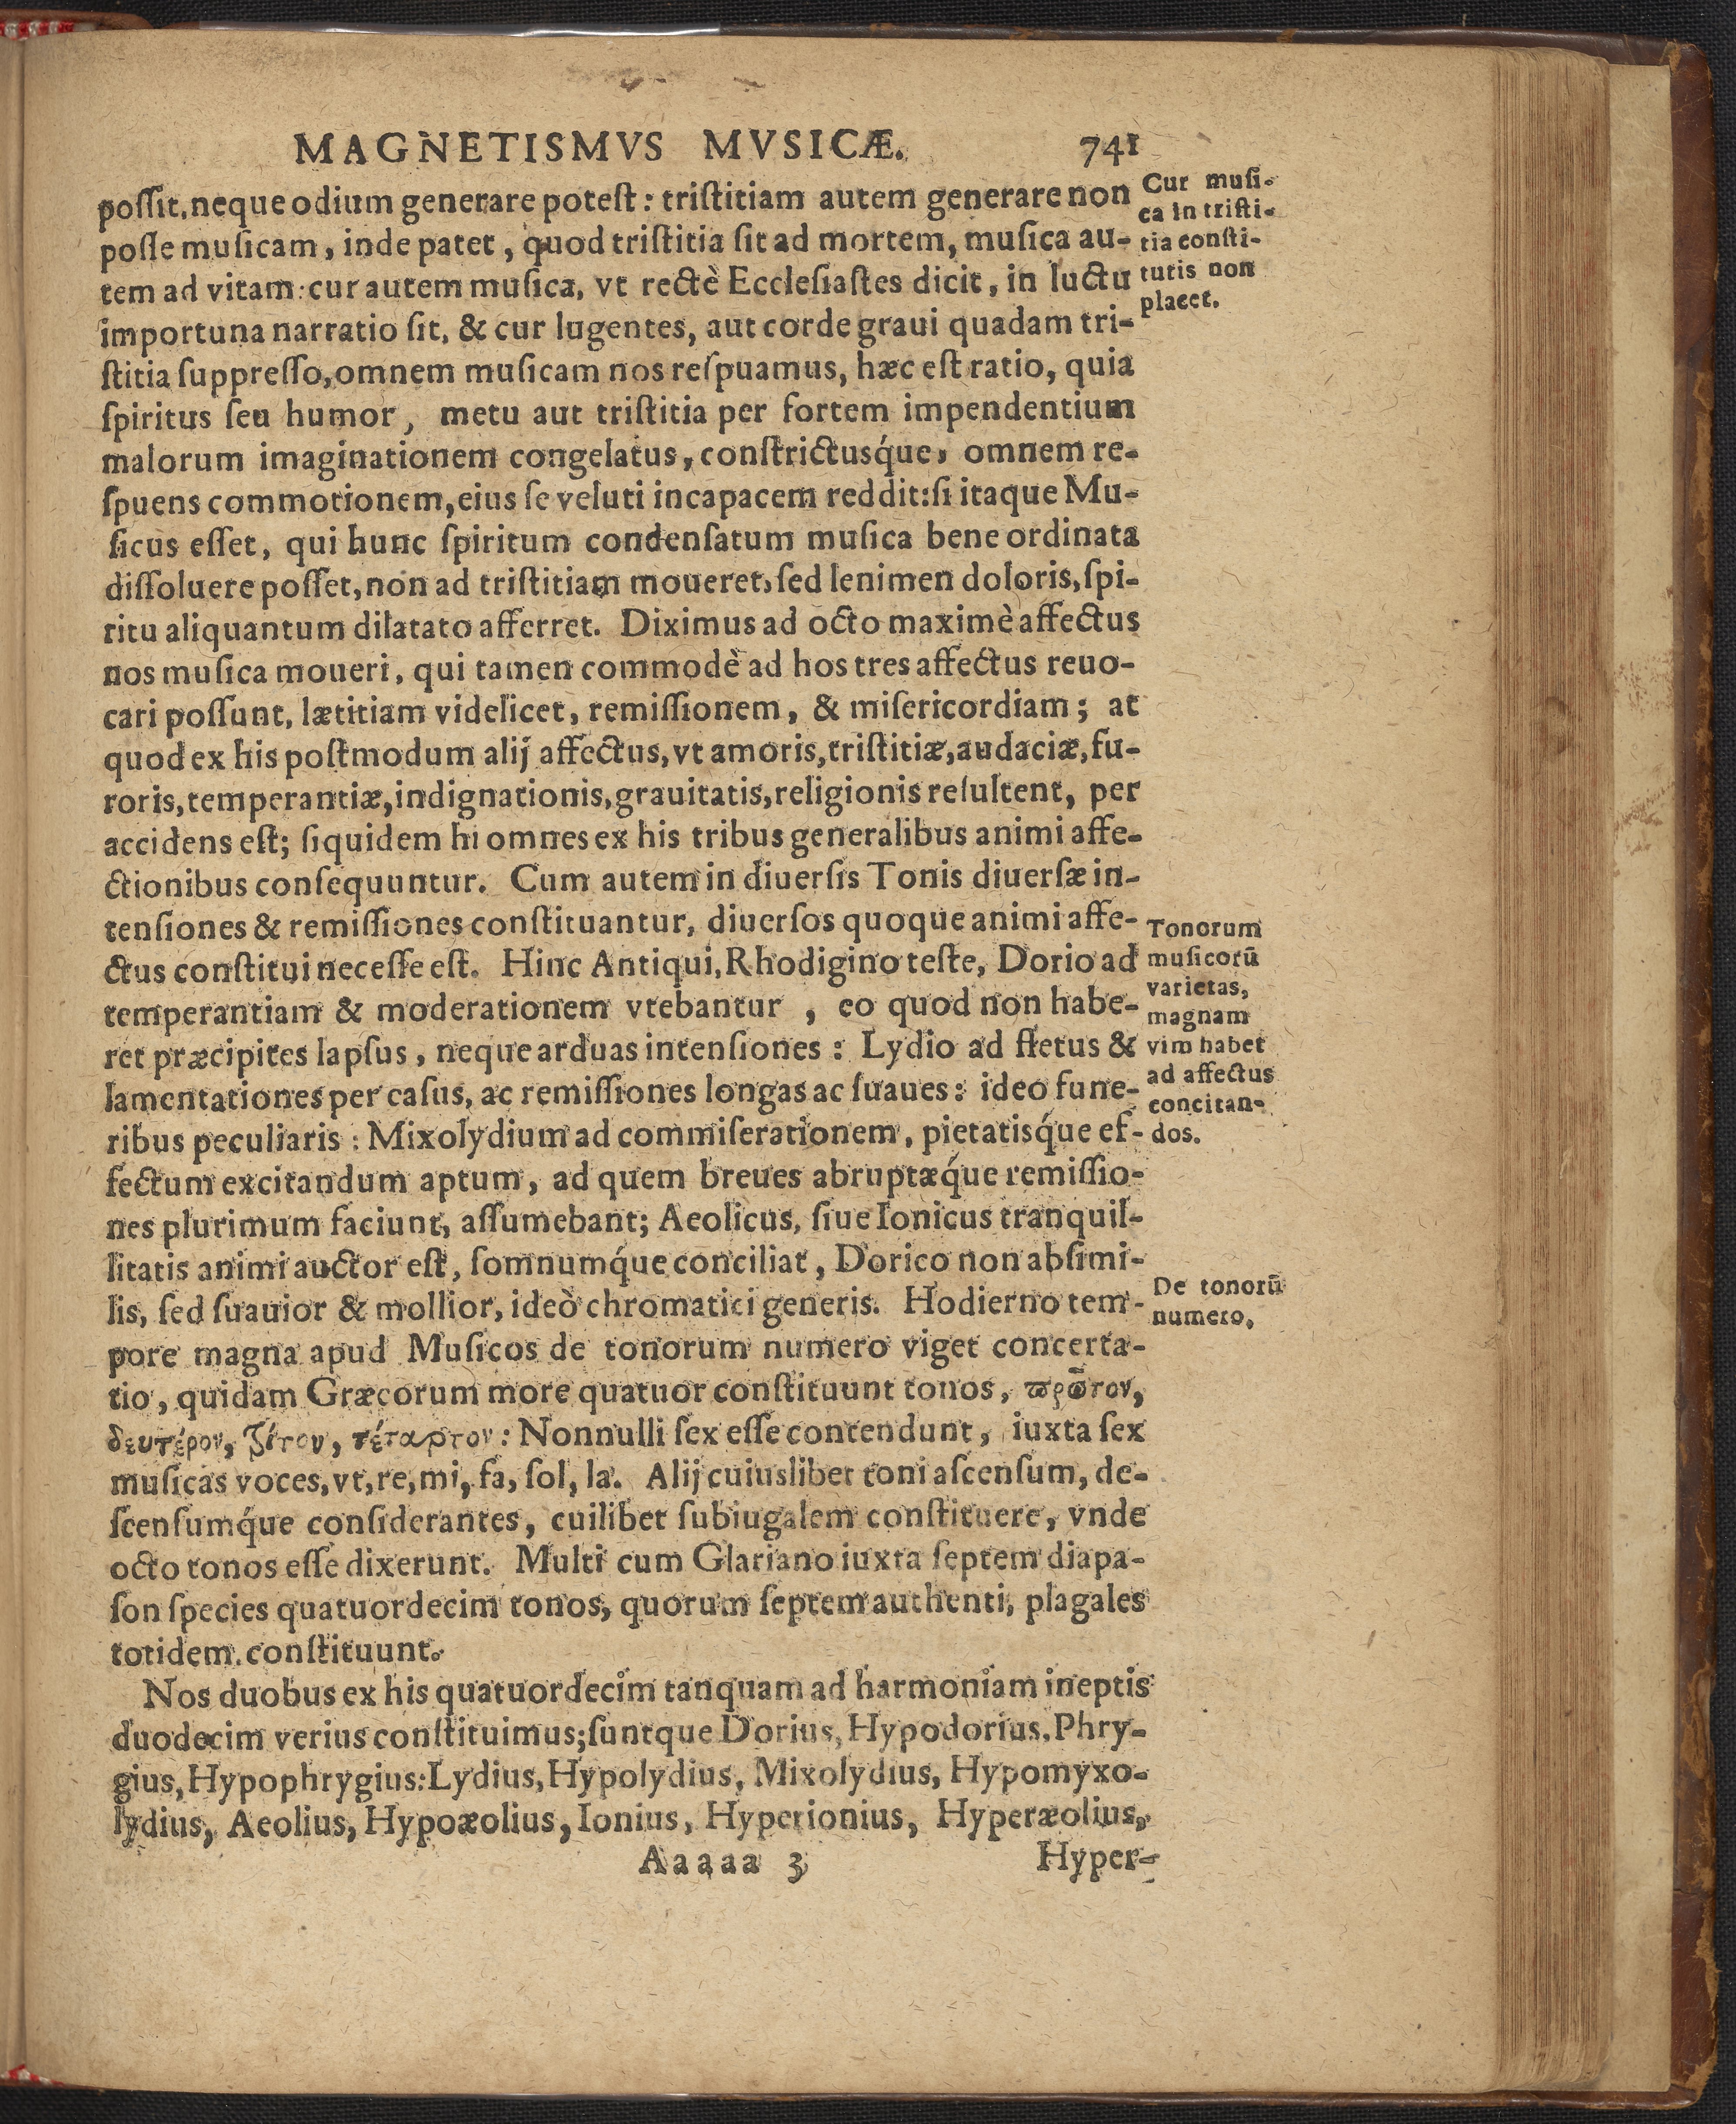 MAGNETISMVS MVSICÆ. 741
poſſit, neque odium generare poteſt: triſtitiam autem generare non
poſſe muſicam, inde patet, quod triſtitia ſit ad mortem, muſica au-
tem ad vitam: cur autem muſica, vt rectè Eccleſiaſtes dicit, in luctu
importuna narratio ſit, & cur lugentes, aut corde graui quadam tri-
ſtitia ſuppreſſo, omnem muſicam nos reſpuamus, hæc eſt ratio, quia
ſpiritus ſeu humor, metu aut triſtitia per fortem impendentium
malorum imaginationem congelatus, conſtrictusq́ue, omnem re-
ſpuens commotionem, eius ſe veluti incapacem reddit: ſi itaque Mu-
ſicus eſſet, qui hunc ſpiritum condenſatum muſica bene ordinata
diſſoluere poſſet, non ad triſtitiam moueret, ſed lenimen doloris, ſpi-
ritu aliquantum dilatato afferret. Diximus ad octo maximè affectus
nos muſica moueri, qui tamen commodè ad hos tres affectus reuo-
cari poſſunt, lætitiam videlicet, remiſſionem, & miſericordiam; at
quod ex his poſtmodum alij affectus, vt amoris, triſtitiæ, audaciæ, fu-
roris, temperantiæ, indignationis, grauitatis, religionis reſultent, per
accidens eſt; ſiquidem hi omnes ex his tribus generalibus animi affe-
ctionibus conſequuntur. Cum autem in diuerſis Tonis diuerſæ in-
tenſiones & remiſſiones conſtituantur, diuerſos quoque animi affe-
ctus conſtitui neceſſe eſt. Hinc Antiqui, Rhodigino teſte, Dorio ad
temperantiam & moderationem vtebantur, eo quod non habe-
ret præcipites lapſus, neque arduas intenſiones: Lydio ad fletus &
lamentationes per caſus, ac remiſſiones longas ac ſuaues: ideo fune-
ribus peculiaris: Mixolydium ad commiſerationem, pietatisq́ue ef-
fectum excitandum aptum, ad quem breues abruptæq́ue remiſſio-
nes plurimum faciunt, aſſumebant; Aeolicus, ſiue Ionicus tranquil-
litatis animi auctor eſt, ſomnumq́ue conciliat, Dorico non abſimi-
lis, ſed ſuauior & mollior, ideò chromatici generis. Hodierno tem-
pore magna apud Muſicos de tonorum numero viget concerta-
tio, quidam Græcorum more quatuor conſtituunt tonos, ϖρῶτον,
δευτέρον, τρίτον, τέταρτον: Nonnulli ſex eſſe contendunt, iuxta ſex
muſicas voces, vt, re, mi, fa, ſol, la. Alij cuiuslibet toni aſcenſum, de-
ſcenſumq́ue conſiderantes, cuilibet ſubiugalem conſtituere, vnde
octo tonos eſſe dixerunt. Multi cum Glariano iuxta ſeptem diapa-
ſon ſpecies quatuordecim tonos, quorum ſeptem authenti, plagales
totidem conſtituunt.
Nos duobus ex his quatuordecim tanquam ad harmoniam ineptis
duodecim verius conſtituimus; ſuntque Dorius, Hypodorius, Phry-
gius, Hypophrygius: Lydius, Hypolydius, Mixolydius, Hypomyxo-
lydius, Aeolius, Hypoæolius, Ionius, Hyperionius, Hyperæolius,
Aaaaa 3 Hyper-
Cur muſi-
ca in triſti-
tia conſti-
tutis non
placet.
Tonorum
muſicorũ
varietas,
magnam
vim habet
ad affectus
concitan-
dos.
De tonorũ
numero.